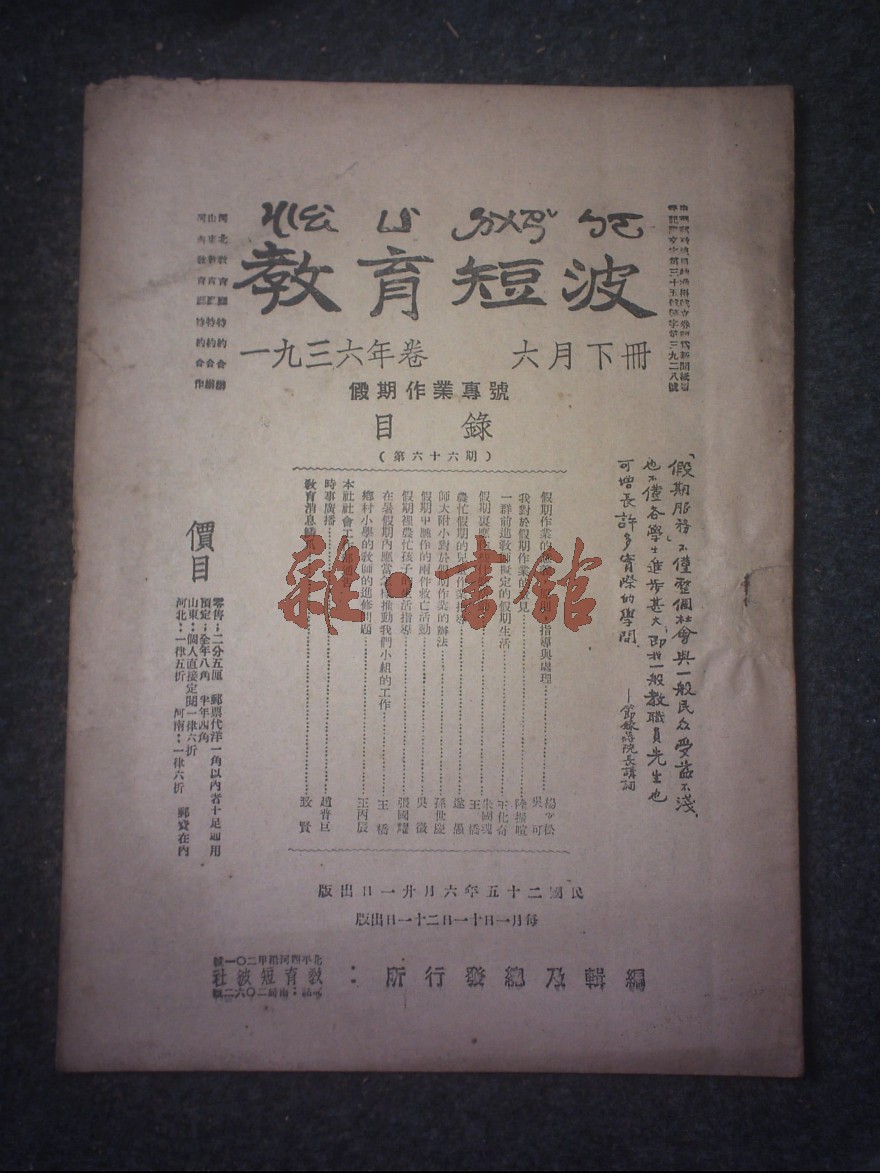 教育短波
一九三六年卷 六月下冊
假期作業專號
目錄
(第六十六期)
河北教育廳特約合辦
山東教育廳特約合辦
河南教育廳特約合作
「假期服務」不僅整個社會與一般民众受益不淺、
也不僅各學生進步甚大、即我一般教職員先生也
可增長許多實際的學問。
院長講詞
指導與處理 楊少松
我對於假期作業的意見 吳可
一群前進教師擬定的假期生活 陸
假期裏應 王化奇
農忙假期的兒童作業指導 朱國
師大附小對於假期作業的辦法 王橋
假期中應作的兩件救亡活動 孫世慶
假期裡農忙孩子的生活指導 吳
在暑假期內應當怎樣推動我們小組的工作 張國
鄉村小學的教師的進修問題 王橋
本社社會工 王丙辰
時事廣播 趙普巨
教育消息 致賢
價目
零售:二分五厘 郵票代洋一角以內者十足通用
預定:全年八角 半年四角
山東:個人直接定閱一律六折
河北:一律五折 河南:一律六折 郵費在內
民國二十五年六月廿一日出版
每月一日十一日二十一日出版
編輯及總發行所:
教育短波社
雜·書館